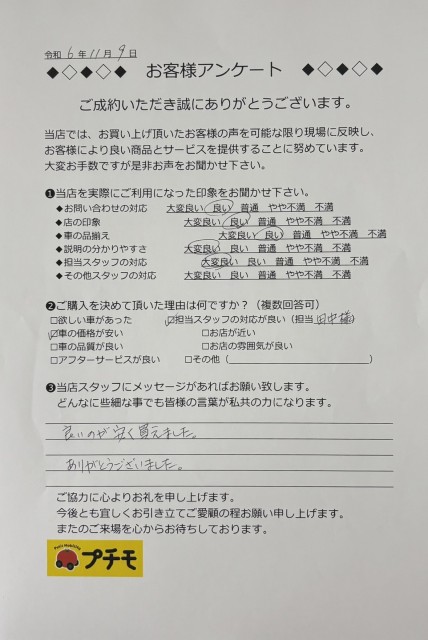 令和 6 年 11 月 9 日
◆◇◆◇◆ お客様アンケート ◆◇◆◇◆
ご成約いただき誠にありがとうございます。
当店では、お買い上げ頂いたお客様の声を可能な限り現場に反映し、
お客様により良い商品とサービスを提供することに努めています。
大変お手数ですが是非お声をお聞かせ下さい。
❶当店を実際にご利用になった印象をお聞かせ下さい。
◆お問い合わせの対応 大変良い 良い 普通 やや不満 不満
◆店の印象 大変良い 良い 普通 やや不満 不満
◆車の品揃え 大変良い 良い 普通 やや不満 不満
◆説明の分かりやすさ 大変良い 良い 普通 やや不満 不満
◆担当スタッフの対応 大変良い 良い 普通 やや不満 不満
◆その他スタッフの対応 大変良い 良い 普通 やや不満 不満
❷ご購入を決めて頂いた理由は何ですか？（複数回答可）
□欲しい車があった ☑担当スタッフの対応が良い（担当 田中様）
☑車の価格が安い □お店が近い
□車の品質が良い □お店の雰囲気が良い
□アフターサービスが良い □その他（ ）
❸当店スタッフにメッセージがあればお願い致します。
どんなに些細な事でも皆様の言葉が私共の力になります。
良いのが安く買えました。
ありがとうございました。
ご協力に心よりお礼を申し上げます。
今後とも宜しくお引き立てご愛顧の程お願い申し上げます。
またのご来場を心からお待ちしております。
プチモ